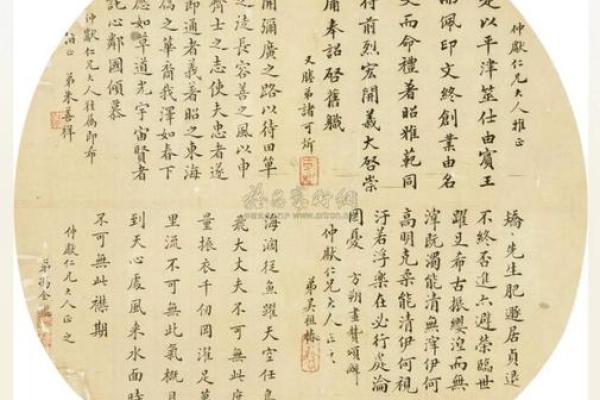 仲獻仁兄大人雅正
是以平津筮仕由賓王
佩印文終創業由名
文而命禮著昭雅範同
待前烈宏開義大啓崇
庸奉詔啓舊職
弟諸可炘
開彌廣之路以待田單
之徒長容善之風以申
齊士之志使夫忠者遂
即通者義著昭之東海
之華裔我澤如春下
應如草道光宇宙賢者
託心鄰國傾慕
仲獻仁兄大人雅屬即希
誨正 弟朱善祥
矯矯先生肥遯居貞退
不終否進亦避榮臨世
躍足希古振纓涅而無
滓既濁能清無滓伊何
高明克柔能清伊何視
汙若浮樂在必行處淪
罔憂 方朔畫贊頌解
仲獻仁兄大人正之
弟吳祖椿
海濶從魚躍天空任鳥
飛大丈夫不可無此度
量振衣千仞岡濯足萬
里流不可無此氣概月
到天心處風來水面時
不可無此襟期
仲獻仁兄大人正之
弟楊金
雅昌藝術網
www.artron.net